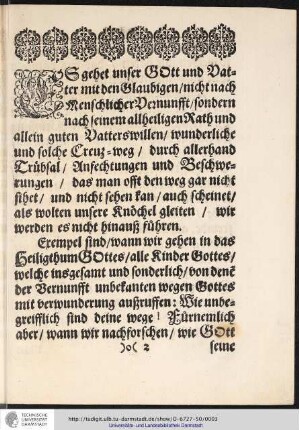 ES gehet unser GOtt und Vat-
ter mit den Glaubigen/ nicht nach
Menschlicher Vernunfft/ sondern
nach seinem allheiligen Rath und
allein guten Vatterswillen/ wunderliche
und solche Creuz-weg/ durch allerhand
Trübsal/ Anfechtungen und Beschwe-
rungen/ das man offt den weg gar nicht
sihet/ und nicht sehen kan/ auch scheinet/
als wolten unsere Knöchel gleiten/ wir
werden es nicht hinauß führen.
Exempel sind/ wann wir gehen in das
Heiligthum GOttes/ alle Kinder Gottes/
welche insgesamt und sonderlich/ von denẽ
der Vernunfft unbekanten wegen Gottes
mit verwunderung außruffen: Wie unbe-
greifflich sind deine wege! Fürnemlich
aber/ wann wir nachforschen/ wie GOtt
)o( 2 seine
TECHNISCHE
UNIVERSITÄT
DARMSTADT
http://tudigit.ulb.tu-darmstadt.de/show/D-6727-50/0003
Universitäts- und Landesbibliothek Darmstadt